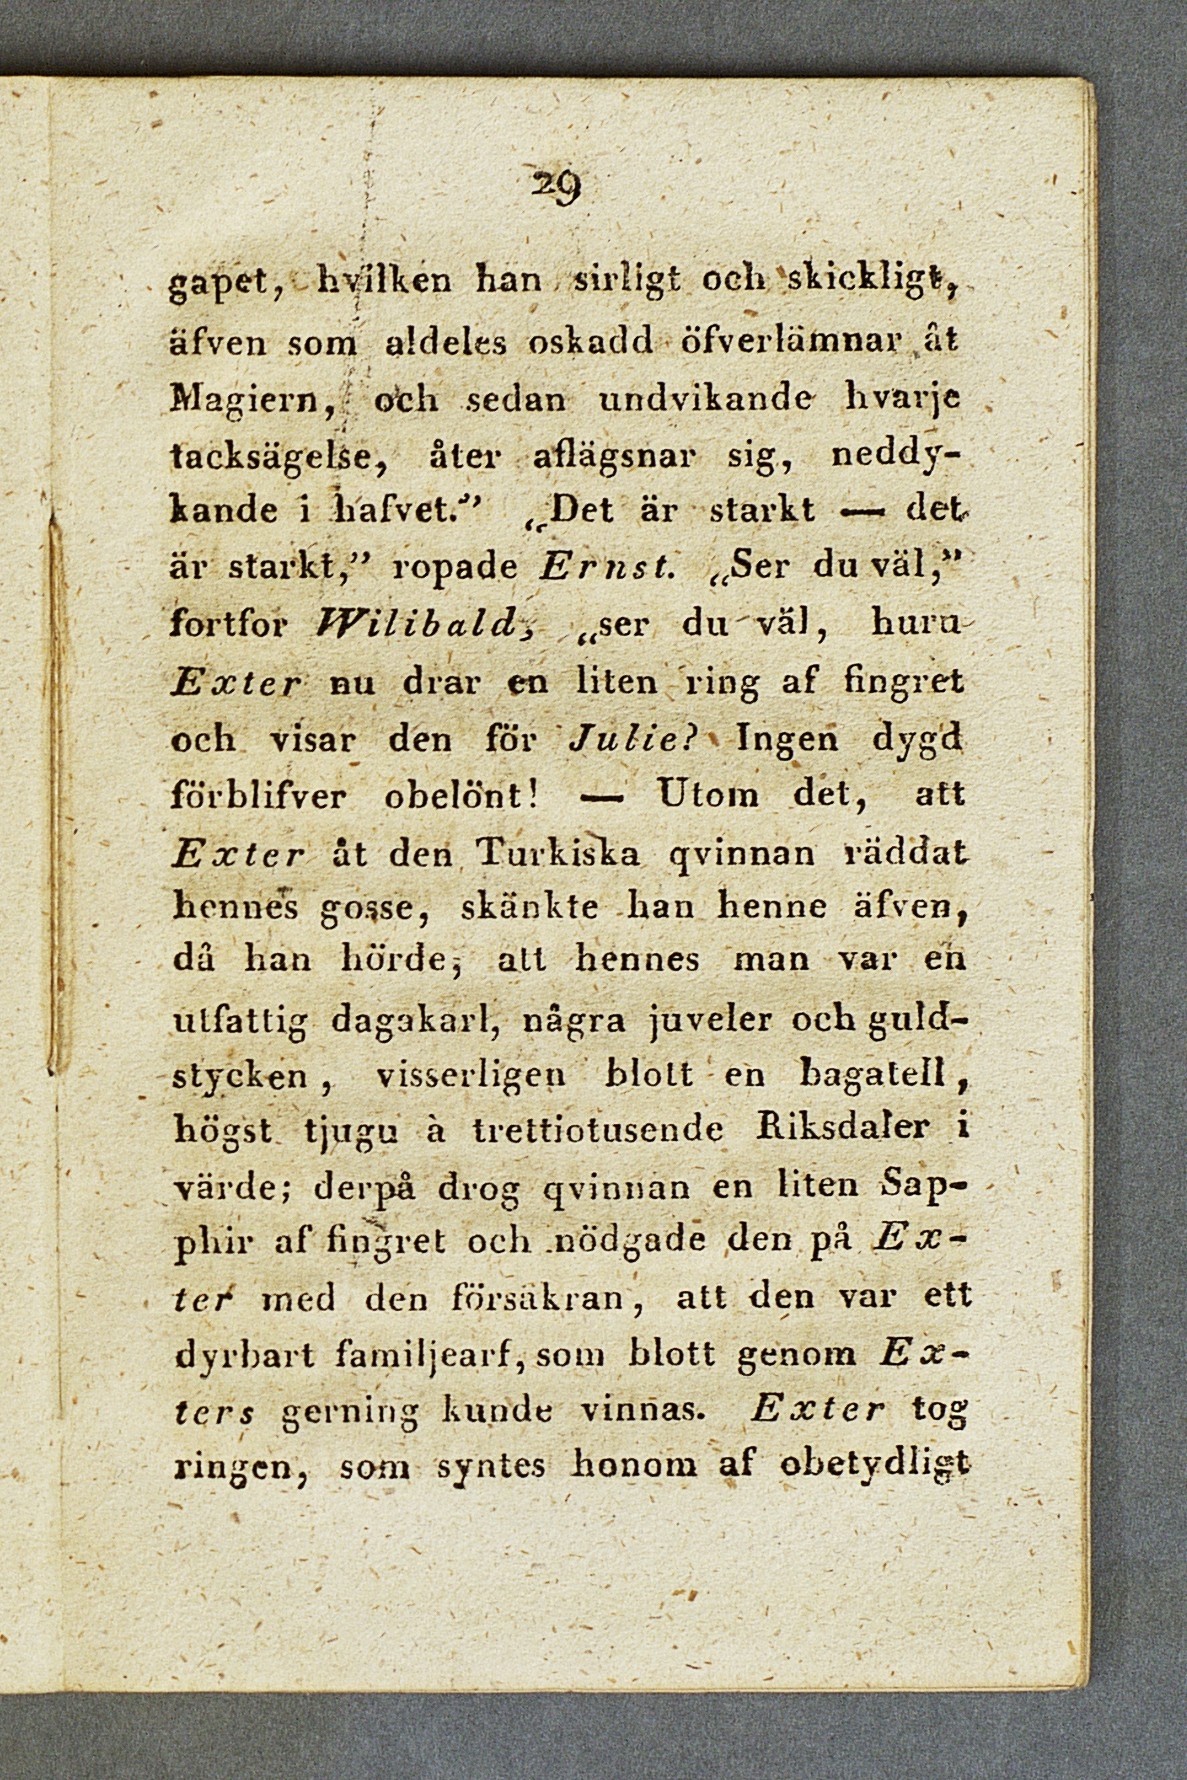 29
gapet, hvilken han sirligt och skickligt,
äfven som aldeles oskadd öfverlämnar åt
Magiern, och sedan undvikande hvarje
tacksägelse, åter aflägsnar sig, neddy-
kande i hafvet.” „Det är starkt — det
är starkt,” ropade Ernst. „Ser du väl,”
fortfor Wilibald, „ser du väl, huru
Exter nu drar en liten ring af fingret
och visar den för Julie? Ingen dygd
förblifver obelönt! — Utom det, att
Exter åt den Turkiska qvinnan räddat
hennes gosse, skänkte han henne äfven,
då han hörde, att hennes man var en
utfattig dagakarl, några juveler och guld-
stycken, visserligen blott en bagatell,
högst tjugu à trettiotusende Riksdaler i
värde; derpå drog qvinnan en liten Sap-
phir af fingret och nödgade den på Ex-
ter med den försäkran, att den var ett
dyrbart familjearf, som blott genom Ex-
ters gerning kunde vinnas. Exter tog
ringen, som syntes honom af obetydligt